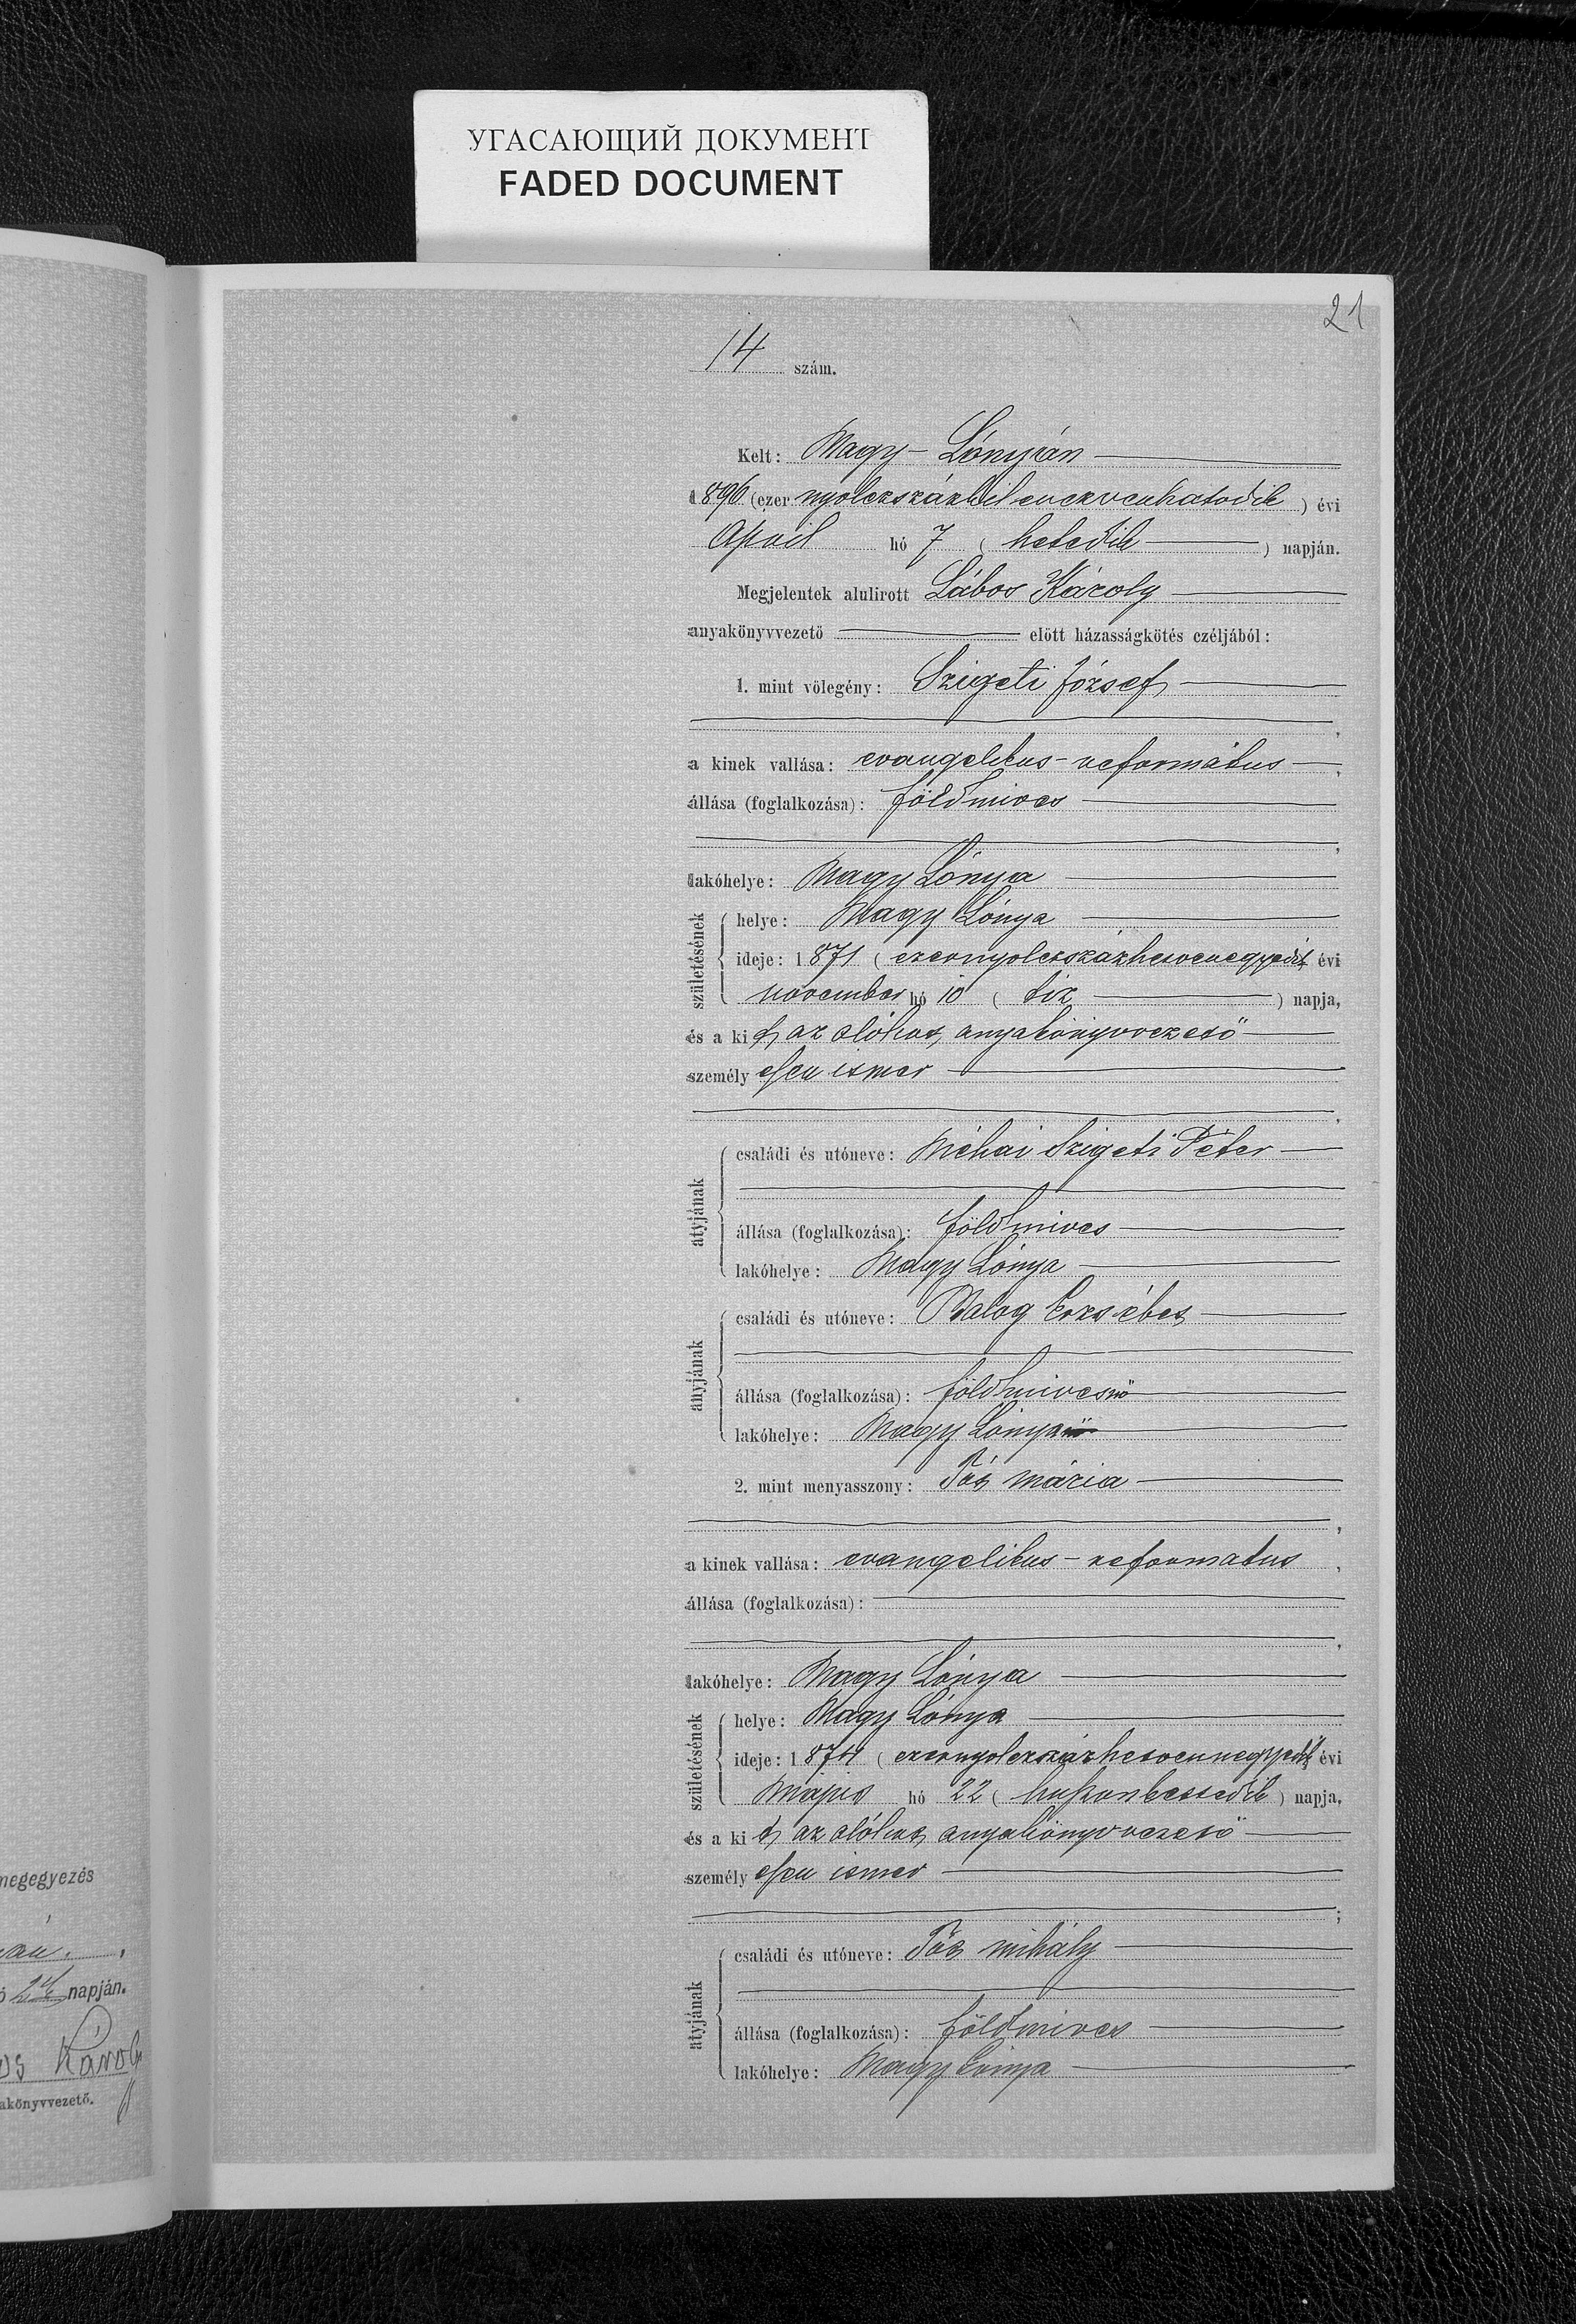 УГАСАЮЩИЙ ДОКУМЕНТ
FADED DOCUMENT
21
14 szám.
Kelt: Nagy-Lónyán
1896 (ezer nyolczszázkilenczvenhatodik) évi
April hó 7 (hetedik) napján.
Megjelentek alulirott Lábos Károly
anyakönyvvezető előtt házasságkötés czéljából:
1. mint völegény: Szigeti József
a kinek vallása: evangelikus-református
állása (foglalkozása): földmives
lakóhelye: Nagy Lónya
születésének
helye: Nagy Lónya
ideje: 1871 (ezernyolczszázhetvenegyedik évi
november hó 10 (tiz) napja,
és a kit az alólirt anyakönyvvezető
személyesen ismer
atyjának
családi és utóneve: Méhai Szigeti Péter
állása (foglalkozása): földmives
lakóhelye: Nagy Lónya
anyjának
családi és utóneve: Balog Erzsébet
állása (foglalkozása): földmivesnő
lakóhelye: Nagy Lónya
2. mint menyasszony: Tót Mária
a kinek vallása: evangelikus-reformatus
állása (foglalkozása):
lakóhelye: Nagy Lónya
születésének
helye: Nagy Lónya
ideje: 1874 (ezernyolczszázhetvennegyedik évi
Május hó 22 (huszonkettedik) napja,
és a kit az alólirt anyakönyvvezető
személyesen ismer
atyjának
családi és utóneve: Tót Mihály
állása (foglalkozása): földmives
lakóhelye: Nagy Lónya
megegyezés
24 napján.
Károly
akönyvvezető.